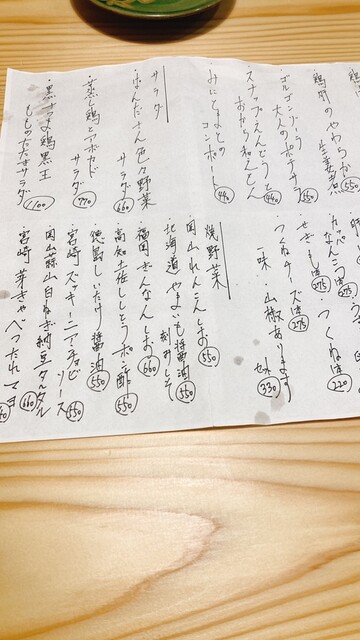 鶏肝のやわらか
生姜煮 550
・ゴルゴンゾーラ
大人のポテサラ 550
・スナップえんどうと
440
・みにとまとの
コンポート 440
サラダ
色々野菜
サラダ 660
・蒸し鶏とアボカド
サラダ 770
・黒さつま鶏黒王
もものたたきサラダ 1100
なんこつ 275 つくね 220
275
つくねチーズ 275
一味・山椒あります
330
焼野菜
・岡山れんこんしお 550
・北海道やまいも醤油
刻みしそ 550
・福岡ぎんなんしお 660
・高知土佐ししとうポン酢 550
・徳島しいたけ醤油 550
・宮崎ズッキーニアンチョビ
ソース 550
・岡山蒜山白ねぎ納豆タルタル 660
・宮崎芽きゃべつたれマヨ